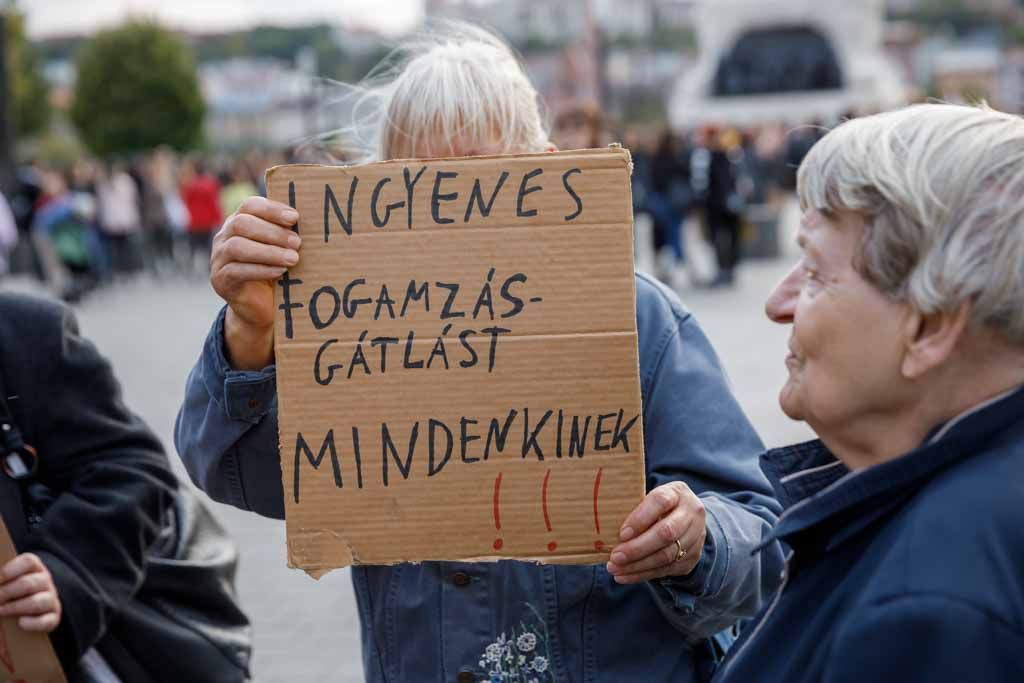 INGYENES
FOGAMZÁS-
GÁTLÁST
MINDENKINEK
!!!